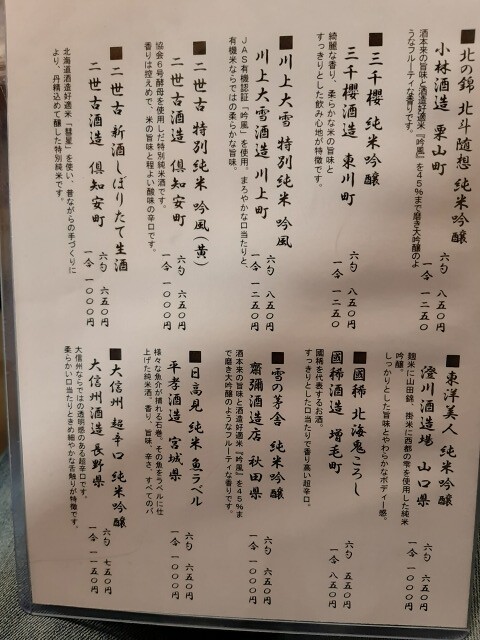 ■北の錦 北斗随想 純米吟醸
小林酒造 栗山町
酒本来の旨味と酒造好適米『吟風』を45%まで磨き大吟醸のよ
うなフルーティな香りです。
六勺 八五〇円
一合 一二五〇
■三千櫻 純米吟醸
三千櫻酒造 東川町
綺麗な香り、柔らかな米の旨味と
すっきりとした飲み心地が特徴です。
六勺 八五〇円
一合 一二五〇
■川上大雪 特別純米 吟風
川上大雪酒造 川上町
JAS有機認証「吟風」を使用。まろやかな口当たりと、
有機米ならではの柔らかな旨味。
六勺 八五〇円
一合 一二五〇円
■二世古 特別純米 吟風(黄)
二世古酒造 倶知安町
協会6号酵母を使用しだ特別純米酒です。
香りは控えめで、米の旨味と程よい酸味の辛口です。
六勺 六五〇円
一合 一〇〇〇円
■二世古 新酒しぼりたて生酒
二世古酒造 倶知安町
北海道酒造好適米「彗星」を使い、昔ながらの手づくりに
より、丹精込めて醸した特別純米です。
六勺 六五〇円
一合 一〇〇〇円
■東洋美人 純米吟醸
澄川酒造場 山口県
麹米に山田錦、掛米に西都の雫を使用した純米
吟醸。
しっかりとした旨味とやわらかなボディー感。
六勺 六五〇円
一合 一〇〇〇円
■國稀 北海鬼ころし
國稀酒造 増毛町
國稀を代表するお酒。
すっきりとした口当たりで香り高い超辛口。
六勺 五五〇円
一合 八五〇円
■雪の茅舎 純米吟醸
齋彌酒造店 秋田県
酒本来の旨味と酒造好適米『吟風』を45%ま
で磨き大吟醸のようなフルーティな香りです。
六勺 六五〇円
一合 一〇〇〇円
■日高見 純米 魚ラベル
平孝酒造 宮城県
様々な魚介が捕れる石巻。その魚をラベルに仕
上げた純米酒。香り、旨味、辛さ、すべてのバ
六勺 六五〇円
一合 一〇〇〇円
■大信州 超辛口 純米吟醸
大信州酒造 長野県
大信州ならではの透明感のある超辛口です。
柔らかい口当たりときめ細やかな舌触りが特徴です。
六勺 七五〇円
一合 一一〇〇円